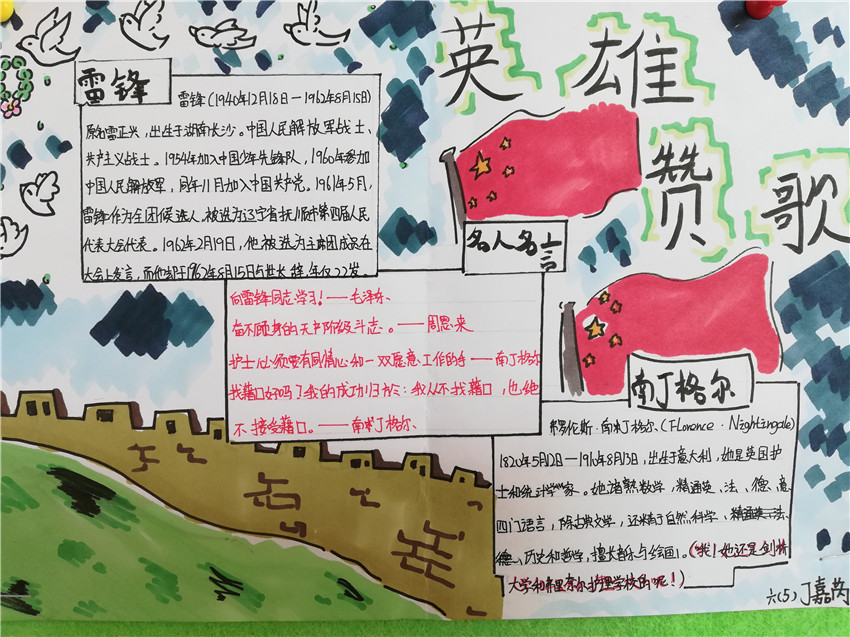 英雄
赞歌
雷锋
雷锋(1940年12月18日—1962年8月15日)
原名雷正兴,出生于湖南长沙。中国人民解放军战士、
共产主义战士。1954年加入中国少年先锋队,1960年参加
中国人民解放军,同年11月加入中国共产党。1961年5月,
雷锋作为全团候选人,被选为辽宁省抚顺市第四届人民
代表大会代表。1962年2月19日,他被选为主席团成员在
大会上发言,而他却于1962年8月15日与世长辞,年仅22岁。
名人名言
向雷锋同志学习!——毛泽东、
奋不顾身的无产阶级斗志。——周恩来
护士必须要有同情心和一双愿意工作的手——南丁格尔
我的成功归于:我从不找藉口,也绝
不接受藉口。——南丁格尔、
南丁格尔
弗罗伦斯·南丁格尔、(Florence·Nightingale)
1820年5月12日—1910年8月13日,出生于意大利,她是英国护
士和统计学家。她谙熟数学,精通英、法、德、意
四门语言,除古典文学,还精于自然科学、精通英、法、
德、历史和哲学,擅长音乐与绘画。(哦!她还是剑桥
大学和
护理学校的呢!)
六(5)丁嘉芮